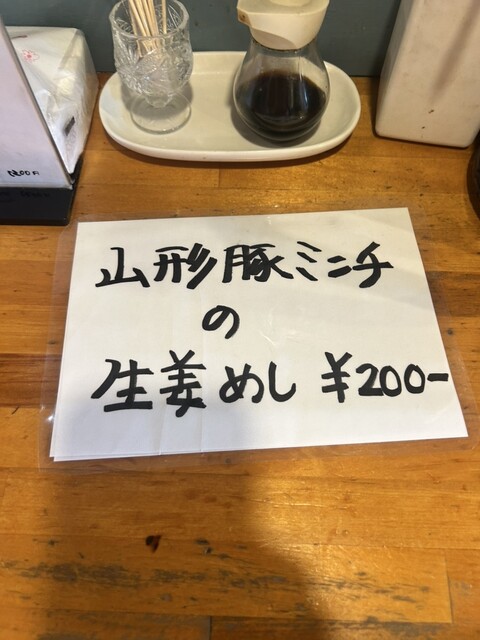 山形豚ミニチ
の
生姜めし ¥200-